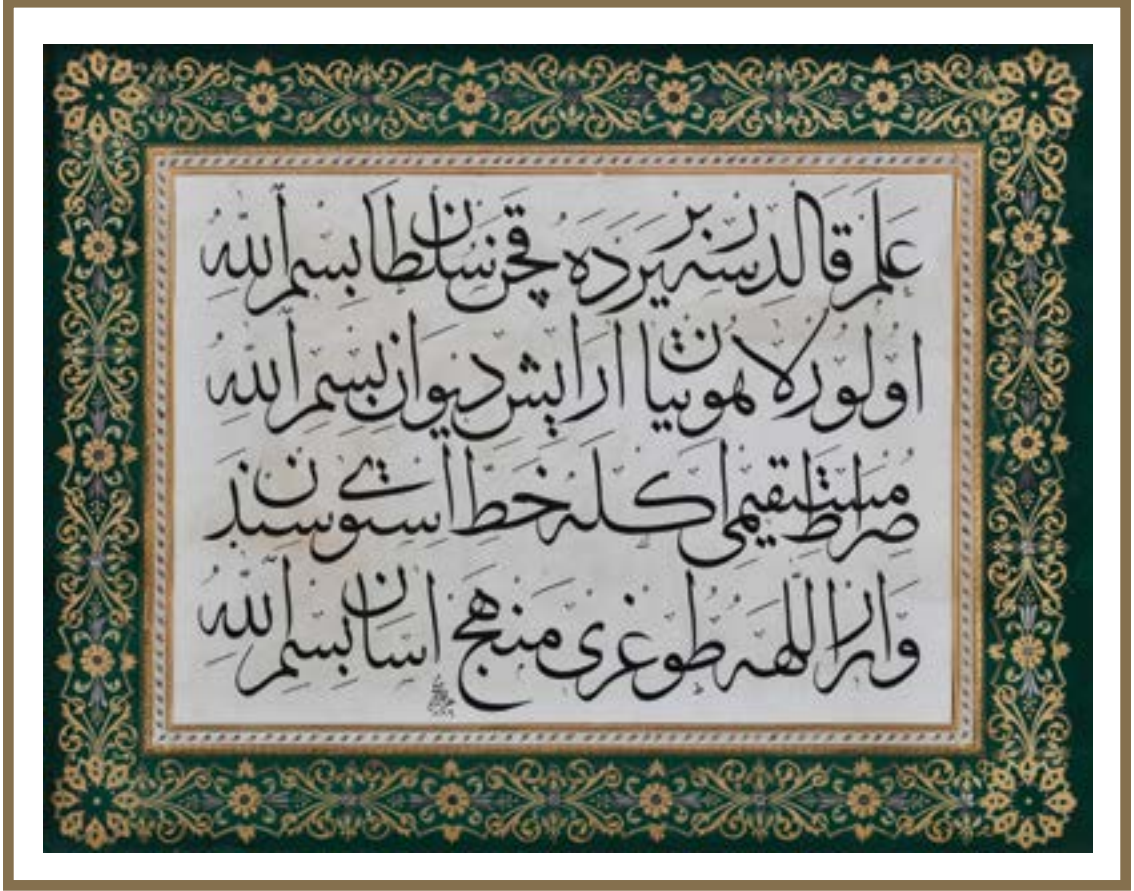 علم قالدرسه بر يرده قچن سلطان بسم الله
اولور لاهوتيان ارايش ديوان بسم الله
صراط مستقيمى اكله خط استوى سندن
وارر اللهه طوغرى منهج اسان بسم الله